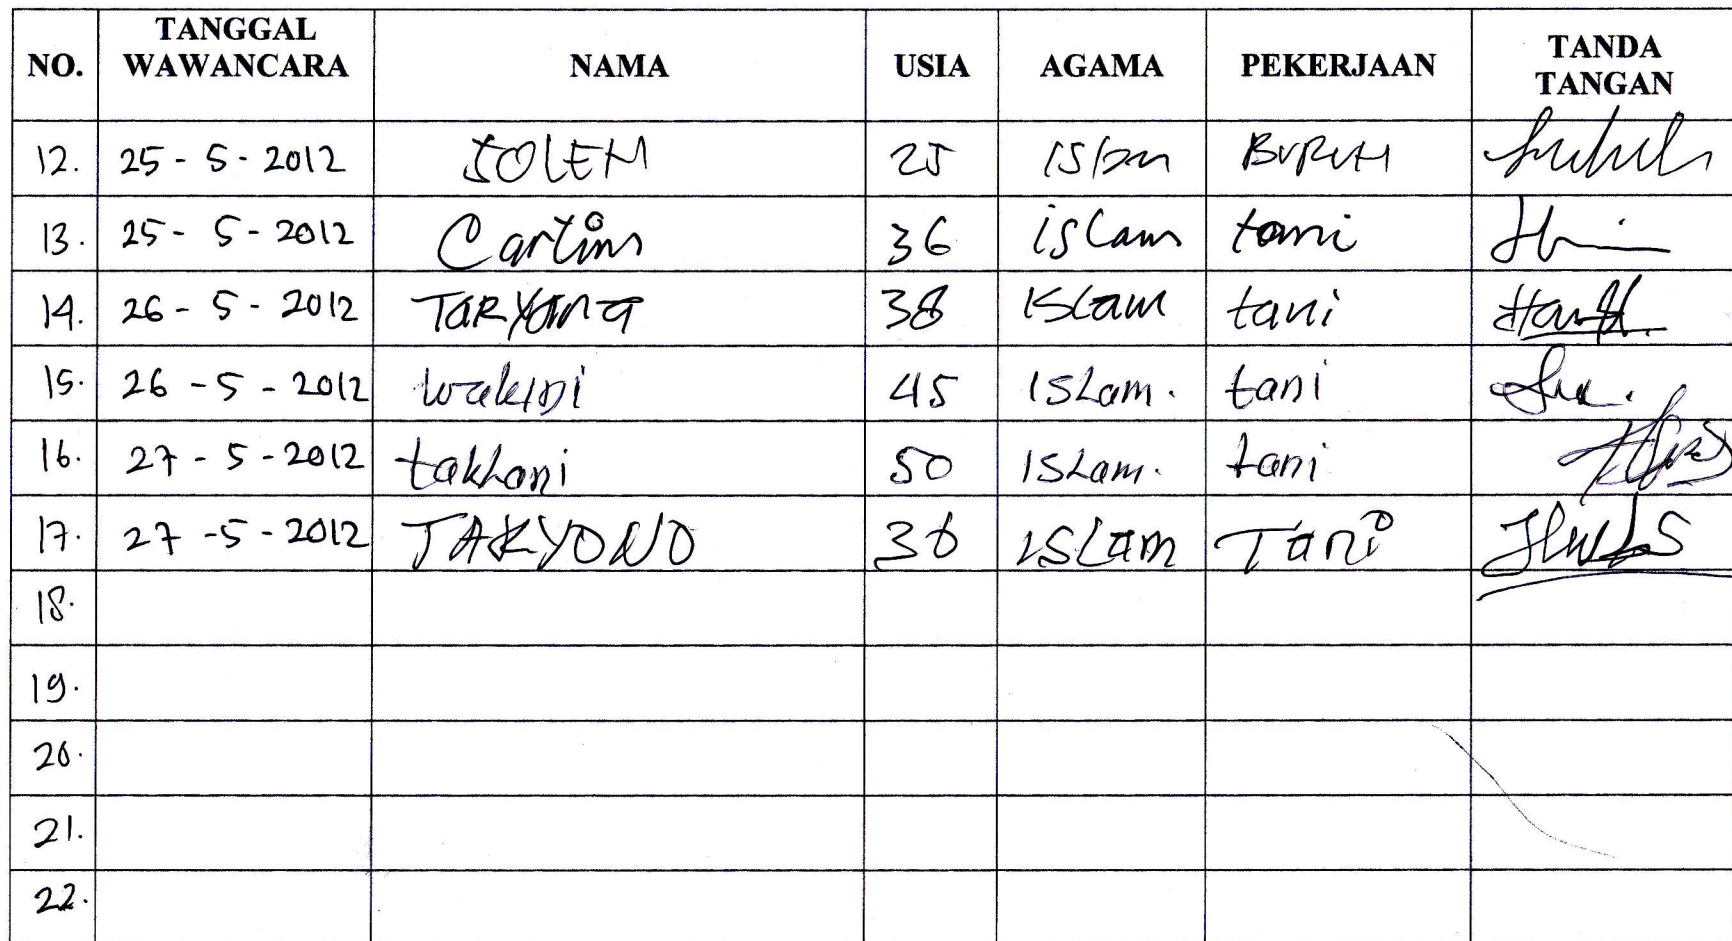 NO. TANGGAL WAWANCARA NAMA USIA AGAMA PEKERJAAN TANDA TANGAN
12. 25 - 5 - 2012 SOLEH 25 islam BURUH
13. 25 - 5 - 2012 Cartim 36 islam tani
14. 26 - 5 - 2012 TARYANA 38 ISLam tani
15. 26 - 5 - 2012 45 ISLam. tani
16. 27 - 5 - 2012 takhani 50 ISLam. tani
17. 27 - 5 - 2012 36 ISLam Tani
18.
19.
20.
21.
22.